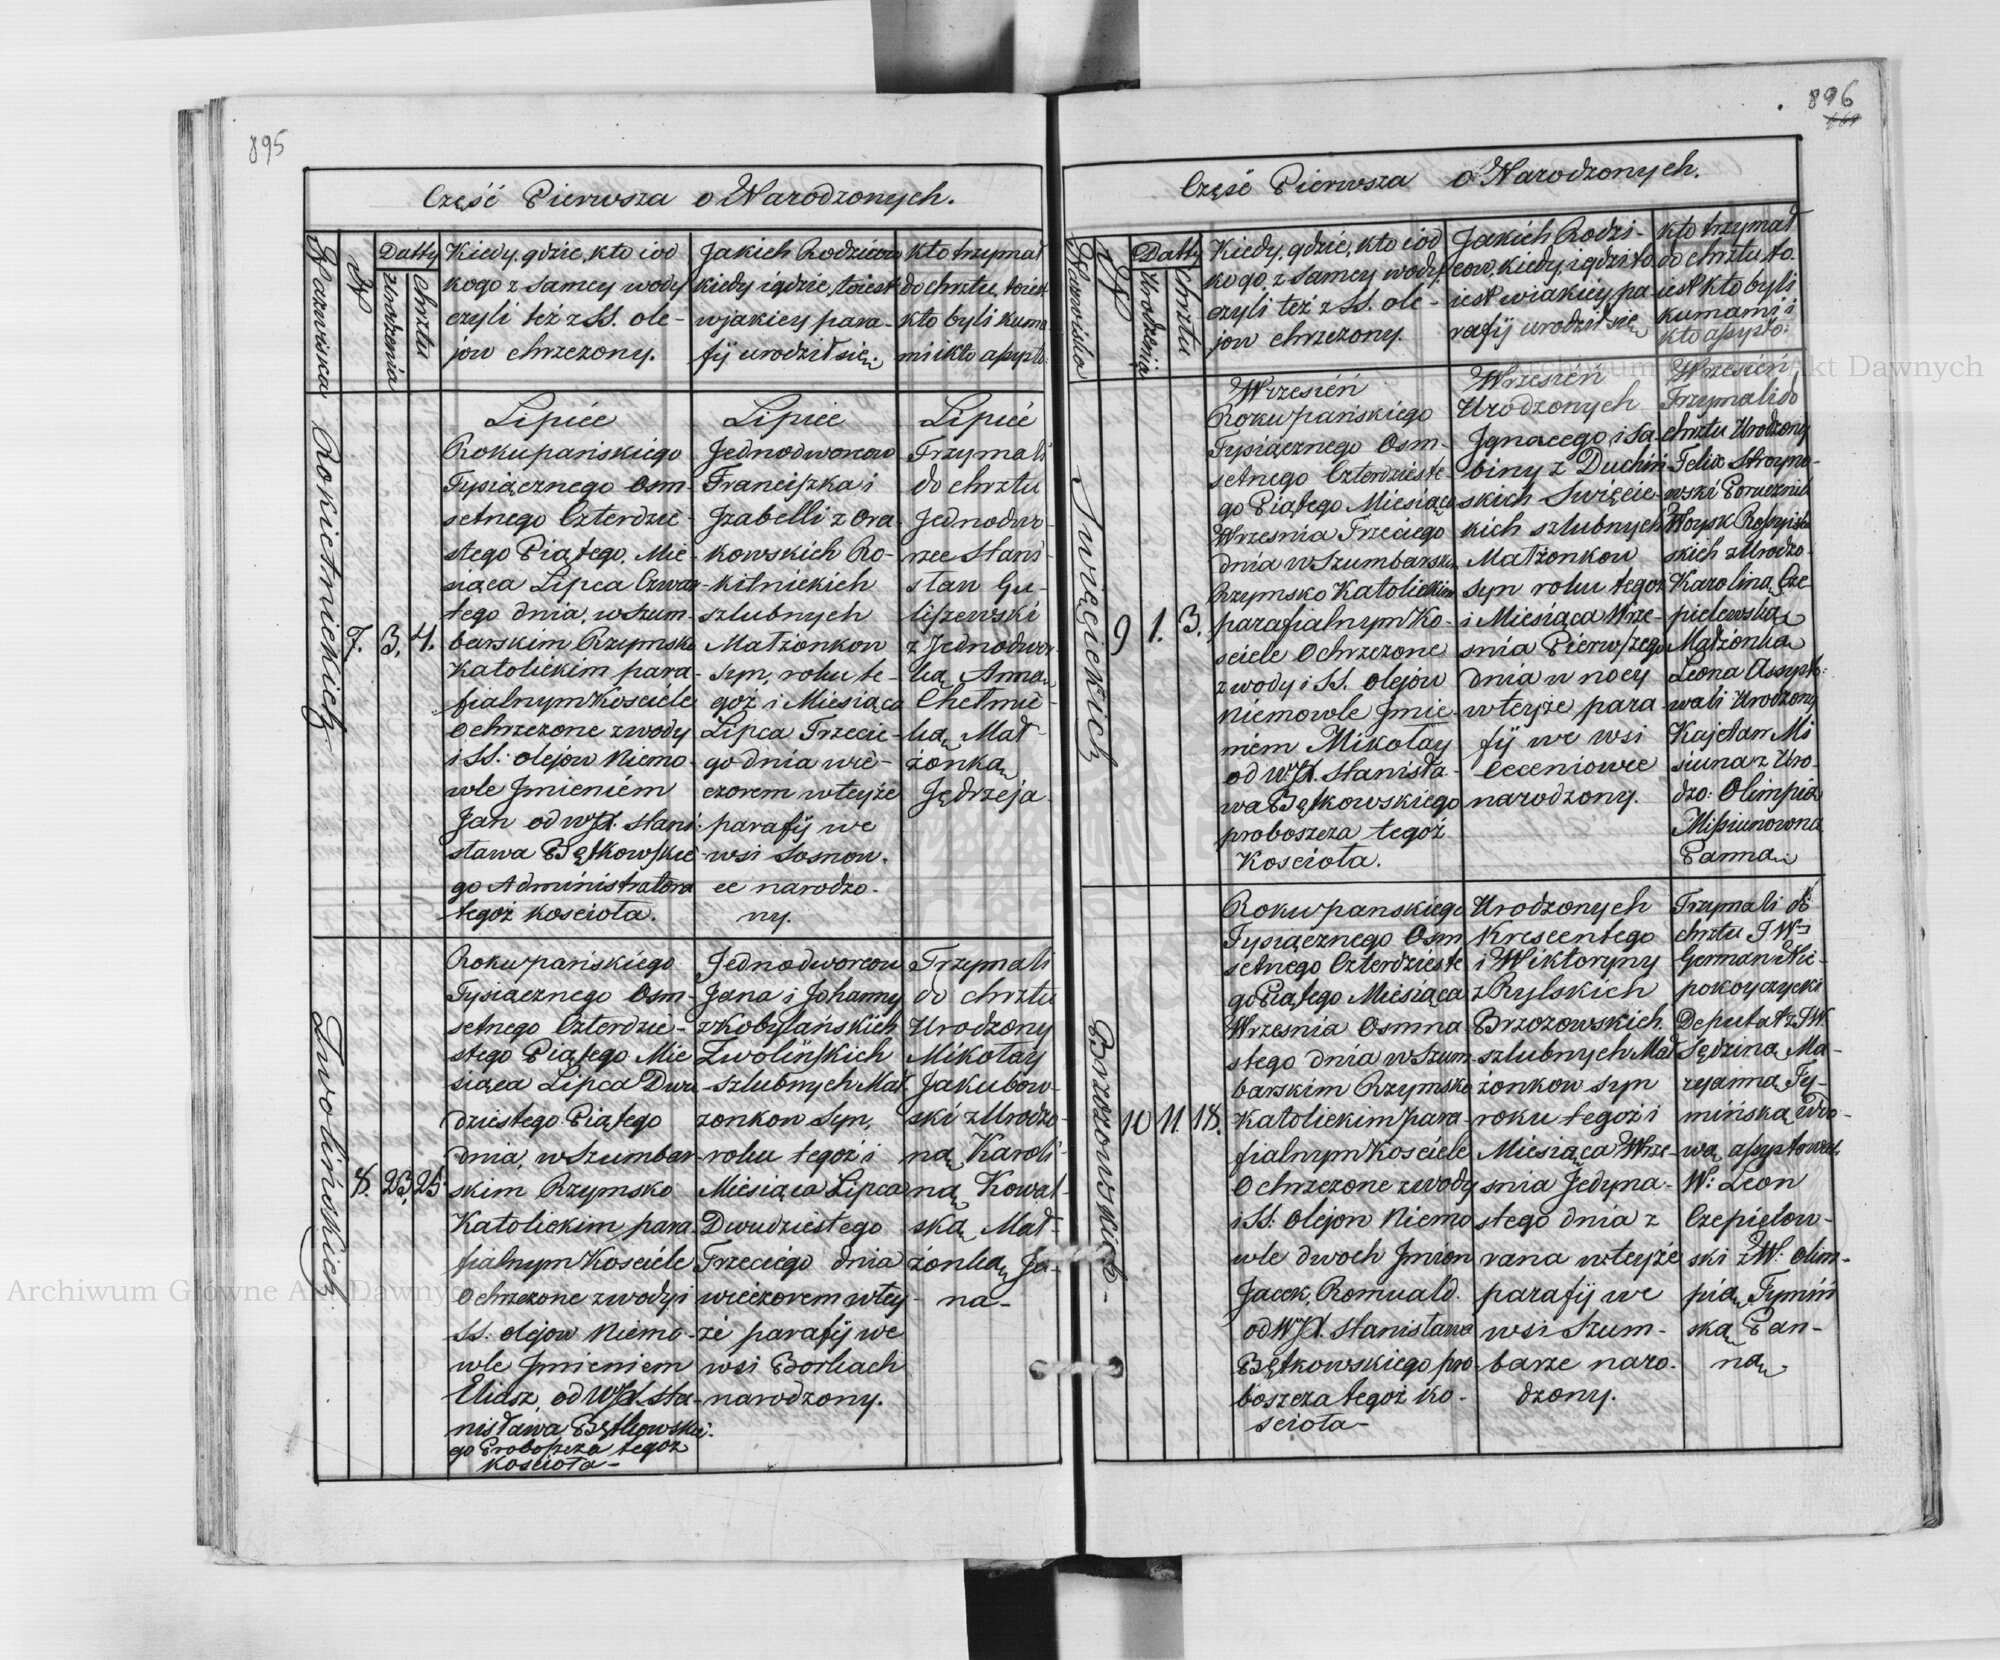 895
Część Pierwsza o Narodzonych.
Nazwiska
N
Datty
urodzenia
Chrztu
Kiedy, gdzie, kto i od
kogo z samey wody
czyli też z SS. ole-
jow chrzczony.
Jakich Rodzicow
kiedy i gdzie, toiest
wjakiey para-
fij urodził się.
Kto trzymał
do chrztu, toiest
kto byli kuma
mi i kto assysto:
Rokietnickich
7.
3.
4.
Lipiec
Roku pańskiego
Tysiącznego Osm-
setnego Czterdzie-
stego Piątego, Mie-
siąca Lipca Czwar-
tego dnia, w Szum-
barskim Rzymsko
Katolickim para-
fialnym Kosciele
Ochrzczone z wody
i SS: olejow Niemo-
wle Jmieniém
Jan od WJX. Stani-
sława Bętkowskie-
go Administratora
tegoż kosciola.
Lipiec
Jednodworcow
Franciszka i
Jzabelli z Ora-
kowskich Ro-
kitnickich
szlubnych
Małżonkow
syn, roku te-
goż i Miesiąca
Lipca Trzecie-
go dnia wie-
czorem w teyże
parafij we
wsi Sosnow-
ce narodzo-
ny.
Lipiec
Trzymali
do chrztu
Jednodwo-
rzec Stani-
sław Gu-
liszewski
z Jednodwor-
ką Anną
Chełmic-
ką Mał-
żonką
Jędrzeja
Zwolińskich
8.
23.
25.
Roku pańskiego
Tysiącznego Osm-
setnego Czterdzie-
stego Piątego Mie
siąca Lipca Dwu
dziestego Piątego
dnia, w Szumbar
skim Rzymsko
Katolickim para
fialnym Kosciele
Ochrzczone z wody i
SS: olejow Niemo-
wle Jmieniem
Eliasz, od WJX. Sta-
nisława Bętkowskie-
go Proboszcza tegoż
Kosciola-
Jednodworcow
Jana i Johanny
z Kobylańskich
Zwolińskich
szlubnych Mał
żonkow Syn,
roku tegoż i
Miesiąca Lipca
Dwudziestego
Trzeciégo dnia
wieczorem w tey-
że parafij we
wsi Borkach
narodzony.
Trzymali
do chrztu
Urodzony
Mikołay
Jakubow-
ski z Urodzo-
ną Karoli-
ną Kowal-
ską Mał-
żonką Ja-
na-
896
Część Pierwsza o Narodzonych.
Nazwiska
N
Datty
Urodzenia
Chrztu
Kiedy, gdzie, kto i od
kogo, z samey wody,
czyli też z SS. ole-
jow chrzczony.
Jakich Rodzi-
cow, kiedy i gdzie to
iest w iakiey pa
rafij urodził się
Kto trzymał
do chrztu to
iest kto byli
kumami i
kto assysto:
Swięcickich
9
1.
3.
Wrzesień
Roku pańskiego
Tysiącznego Osm-
setnego Czterdzieste-
go Piątego Miesiąca
Wrzesnia Trzeciego
dnia w Szumbarskim
Rzymsko Katolickim
parafialnym Ko-
sciele Ochrzczone
z wody i SS. olejow
Niemowle Jmie-
niem Mikołay
od WJX. Stanisła-
wa Bętkowskiego
proboszcza tegoż
Kosciola.
Wrzesień
Urodzonych
Jgnacego i Sa-
biny z Duchiń-
skich Swięcic-
kich szlubnych
Małżonkow
syn roku tegoż
i Miesiąca Wrze-
snia Pierwszego
dnia w nocy
w teyże para-
fij we wsi
Ceceniowce
narodzony.
Wrzesień
Trzymali do
chrztu Urodzony
Felix Stroyno-
wski Porucznik
Woysk Rossyi-
skich z Urodzo-
Karoliną Cze-
pielewską
Małżonką
Leona Assysto:
wali Urodzony
Kajetan Mi
siuna z Uro-
dzo: Olimpią
Missiunowoną
Panną
Brzozowskich-
10
11.
18.
Roku panskiego
Tysiącznego Osm
setnego Czterdzieste
go Piątego Miesiąca
Wrzesnia Osmna-
stego dnia w Szum-
barskim Rzymsko
Katolickim para-
fialnym Kosciele
Ochrzczone z wody
i SS: Olejow Niemo
wle dwoch Jmion
Jacek, Romuald
od WJX. Stanisława
Bętkowskiego pro-
boszcza tegoż ko-
sciola-
Urodzonych
Krescentego
i Wiktoryny
z Rylskich
Brzozowskich
szlubnych Mał
żonkow syn
roku tegoż i
Miesiąca Wrze-
snia Jedyna-
stego dnia z
rana w teyże
parafij we
wsi Szum-
barze naro-
dzony.
Trzymali do
chrztu JW
German Nie-
pokoyczycki
Deputat z JW.
Sędziną Ma-
ryanną Ty-
mińską Wdo-
wą assystowali
W: Leon
Czepielow-
ski z W: Olim-
pią Tymiń
ską Pan-
ną.
Archiwum Główne Akt Dawnych
Archiwum Główne Akt Dawnych